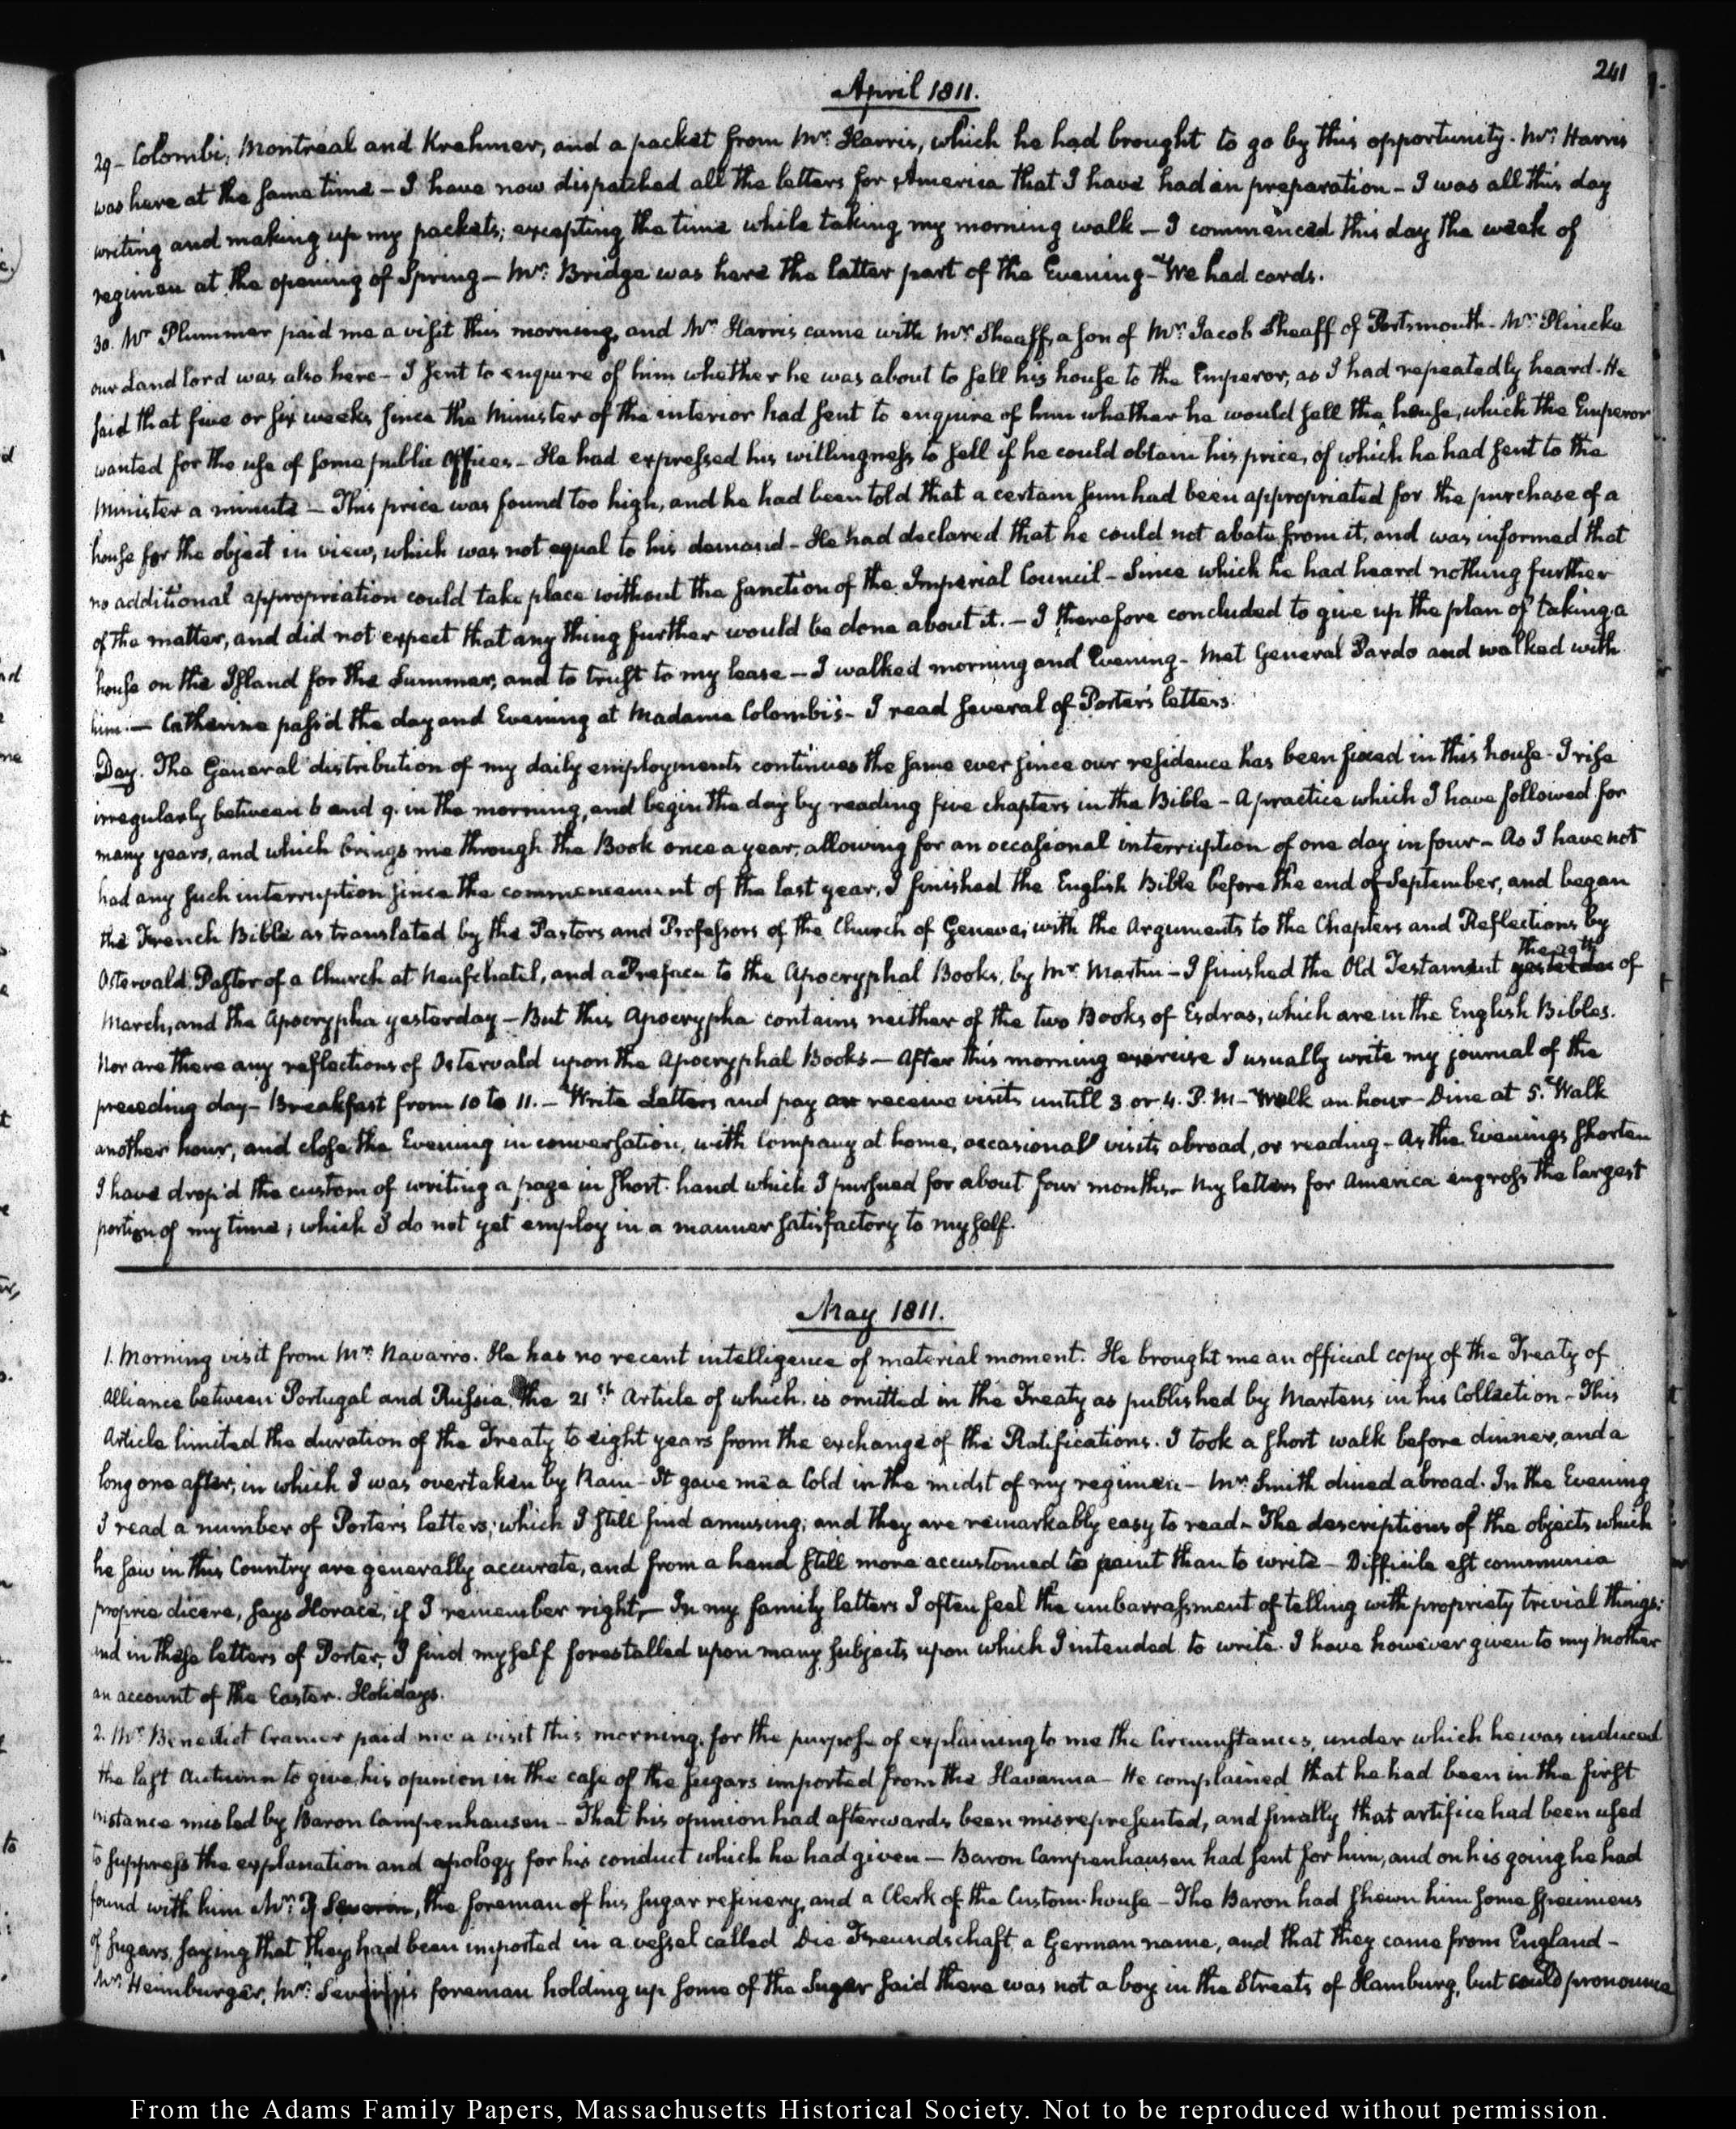 241
April 1811.
29- Colombi, Montreal and Krehmer, and a packet from Mr. Harris, which he had brought to go by this opportunity. Mr. Harris
was here at the same time - I have now dispatched all the letters for America that I have had in preparation - I was all this day
writing and making up my packets; excepting the time while taking my morning walk - I commenced this day the week of
regimen at the opening of Spring - Mr. Bridge was here the latter part of the Evening - We had cards.
30. Mr. Plummer paid me a visit this morning, and Mr. Harris came with Mr. Sheaff, a son of Mr. Jacob Sheaff of Portsmouth. Mr. Plincke
our Landlord was also here - I sent to enquire of him whether he was about to sell his house to the Emperor, as I had repeatedly heard. He
said that five or six weeks since the Minister of the interior had sent to enquire of him whether he would sell the house, which the Emperor
wanted for the use of some public Offices - He had expressed his willingness to sell if he could obtain his price, of which he had sent to the
Minister a minute - This price was found too high, and he had been told that a certain sum had been appropriated for the purchase of a
house for the object in view, which was not equal to his demand - He had declared that he could not abate from it, and was informed that
no additional appropriation could take place without the sanction of the Imperial Council - Since which he had heard nothing further
of the matter, and did not expect that any thing further would be done about it. - I therefore concluded to give up the plan of taking a
house on the Island for the Summer, and to trust to my lease - I walked morning and Evening - Met General Pardo and walked with
him. - Catherine pass'd the day and Evening at Madame Colombi's - I read several of Porter's letters.
Day. The General distribution of my daily employments continues the same ever since our residence has been fixed in this house - I rise
irregularly between 6 and 9. in the morning, and begin the day by reading five chapters in the Bible - A practice which I have followed for
many years, and which brings me through the Book once a year, allowing for an occasional interruption of one day in four - As I have not
had any such interruption since the commencement of the last year, I finished the English Bible before the end of September, and began
the French Bible as translated by the Pastors and Professors of the Church of Geneva; with the Arguments to the Chapters and Reflections by
Ostervald, Pastor of a Church at Neufchatel, and a Preface to the Apocryphal Books, by Mr. Martin - I finished the Old Testament yesterday the of
March, and the Apocrypha yesterday - But this Apocrypha contains neither of the two Books of Esdras, which are in the English Bibles.
Nor are there any reflections of Ostervald upon the Apocryphal Books - After this morning exercise I usually write my journal of the
preceding day - Breakfast from 10 to 11. - Write Letters and pay or receive visits until 3 or 4. P.M - Walk an hour - Dine at 5. Walk
another hour, and close the Evening in conversation, with Company at home, occasional visits abroad, or reading - As the Evenings shorten
I have drop'd the custom of writing a page in short-hand which I pursued for about four months - My letters for America engross the largest
portion of my time; which I do not yet employ in a manner satisfactory to myself.
May 1811.
1. Morning visit from Mr. Navarro. He has no recent intelligence of material moment. He brought me an official copy of the Treaty of
Alliance between Portugal and Russia the 21st Article of which is omitted in the Treaty as published by Martens in his Collection - This
Article limited the duration of the Treaty to eight years from the exchange of the Ratifications. I took a short walk before dinner, and a
long one after, in which I was overtaken by Rain - It gave me a Cold in the midst of my regimen - Mr. Smith dined abroad. In the Evening
I read a number of Porter's letters; which I still find amusing; and they are remarkably easy to read - The descriptions of the objects which
he saw in this Country are generally accurate, and from a hand still more accustomed to paint than to write - Difficile est communia
proprie dicere, says Horace, if I remember right, - In my family letters I often feel the embarrassment of telling with propriety trivial things;
and in these letters of Porter, I find myself forestalled upon many subjects upon which I intended to write. I have however given to my Mother
an account of the Easter-Holidays.
2. Mr. Benedict Cramer paid me a visit this morning, for the purpose of explaining to me the Circumstances, under which he was induced
the last Autumn to give his opinion in the case of the sugars imported from the Havanna - He complained that he had been in the first
instance misled by Baron Campenhausen - That his opinion had afterwards been misrepresented, and finally that artifice had been used
to suppress the explanation and apology for his conduct which he had given - Baron Campenhausen had sent for him, and on his going he had
found with him Mr. Severin, the foreman of his sugar refinery, and a Clerk of the Custom-house - The Baron had shewn him some specimens
of sugars, saying that they had been imported in a vessel called Die Freundschaft, a German name, and that they came from England -
Mr. Heimburger, Mr. Severin's foreman holding up some of the Sugar said there was not a boy in the Streets of Hamburg, but could pronounce
From the Adams Family Papers, Massachusetts Historical Society. Not to be reproduced without permission.